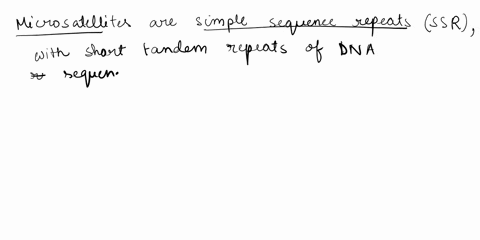 Microsatellites are simple sequence repeats (SSR),
with short tandem repeats of DNA
sequen